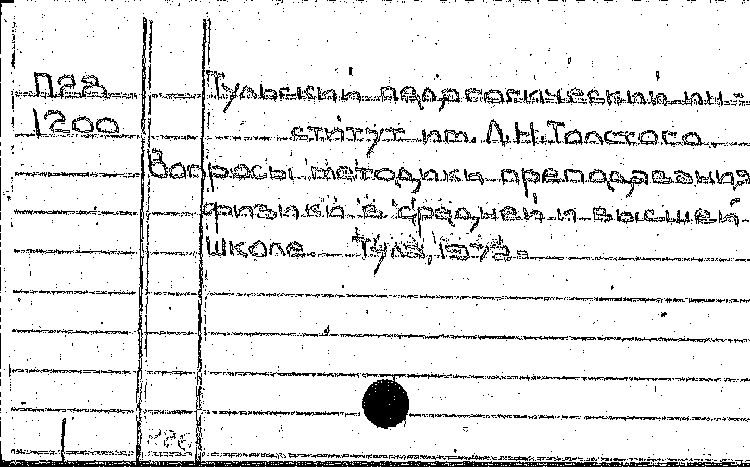 П22
1200
Тульский педагогический ин-
ститут им. Л.Н.Толстого.
Вопросы методики преподавания
физики в средней и высшей
школе. Тула, 1973.